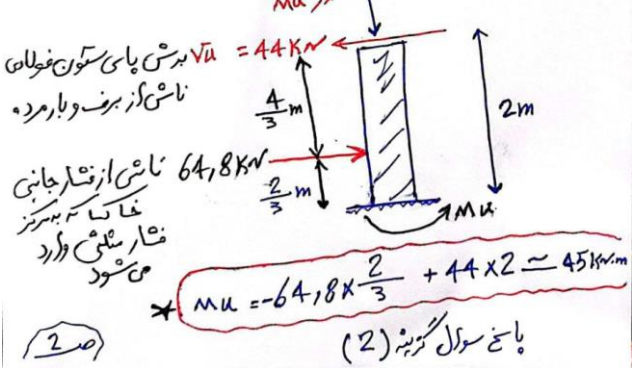 Mu
برش پای ستون فولادی Vu = 44 KN
ناشی از برف و بار مرده
4/3 m
2m
64,8 KN ناشی از فشار جانبی
خاک که به مرکز
فشار مثلثی وارد
می‌شود
2/3 m
Mu
* Mu = -64,8 × 2/3 + 44 × 2 ≃ 45 KN.m
پاسخ سوال گزینه (2)
ص 2